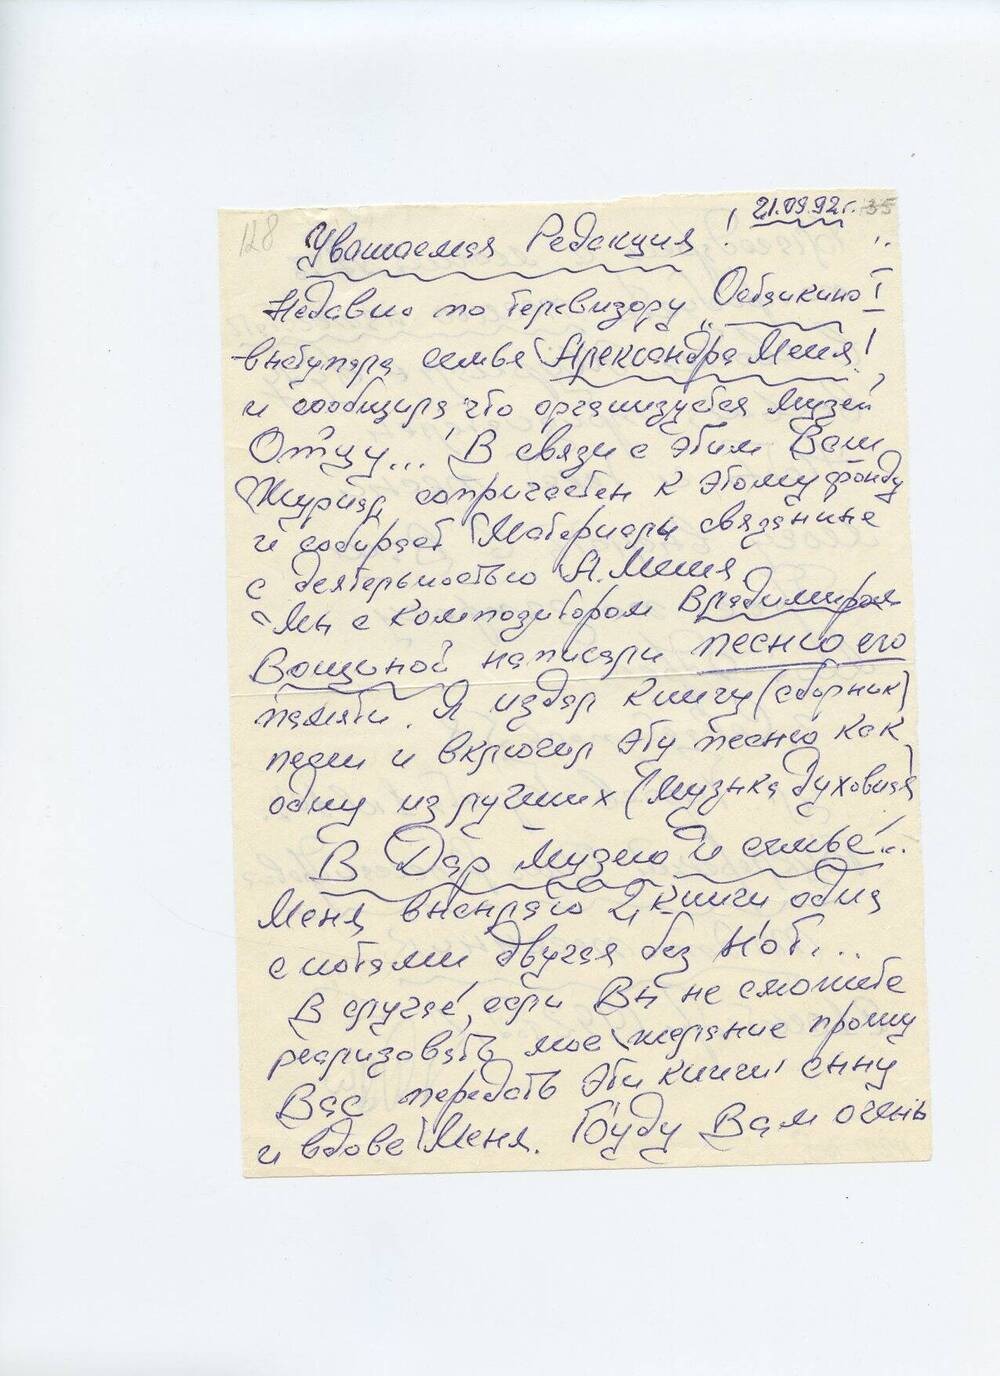 128
21.09.92г. 135
Уважаемая Редакция!
Недавно по телевизору „Останкино"
выступала семья Александра Меня!
и сообщила что организуется музей
Отцу...! В связи с этим Ваш
журнал сопричастен к этому фонду
и собирает Материалы связанные
с деятельностью А. Меня
Мы с композитором Владимиром
Вощиной написали песню его
памяти. Я издал книгу (сборник)
песен и включил эту песню как
одну из лучших (музыка духовная)
В Дар Музею и семье!..
Меня высылаю 2 книги одна
с нотами другая без нот...
В случае, если Вы не сможете
реализовать мое желание прошу
Вас передать эти книги сыну
и вдове Меня. Буду Вам очень